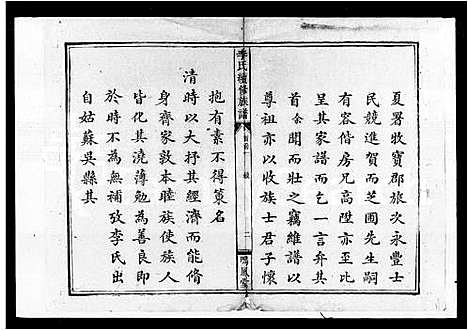 夏署牧寶郡旅次永豐士
民競進賀而芝圃先生嗣
有容偕房兄高陞亦至而
呈其家譜而乞一言弁其
首余聞而壯之竊維譜以
尊祖亦以收族士君子懷
李氏續修族譜
二
鳴鳳堂
抱有素不得策名
清時以大抒其經濟而能脩
身齊家敦本睦族使族人
皆化其澆薄勉為善良即
於時不為無補攷李氏出
自姑蘇吳縣其